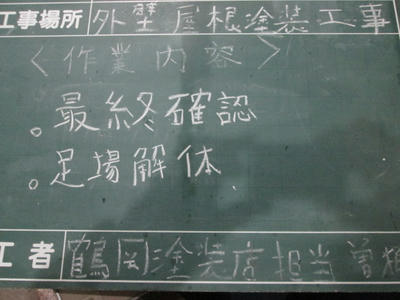 工事場所 外壁 屋根塗装工事
〈作業内容〉
。最終確認
。足場解体
工者 鶴岡塗装店 担当 曽根